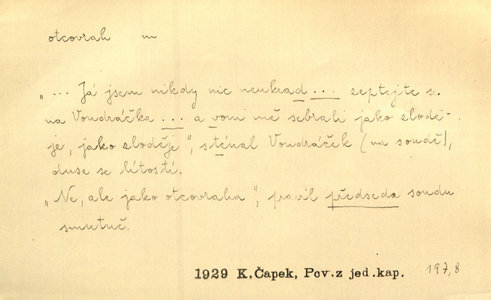 otcovrah m
„... Já jsem nikdy nic neukrad ... zeptejte s.
na Vondráčka ... a voni mě sebrali jako zlodě-
je, jako zloděje", sténal Vondráček (na soudě),
duse se lítostí.
„Ne, ale jako otcovraha", pravil předseda soudu
smutně.
1929 K.Čapek, Pov.z jed.kap. 197,8